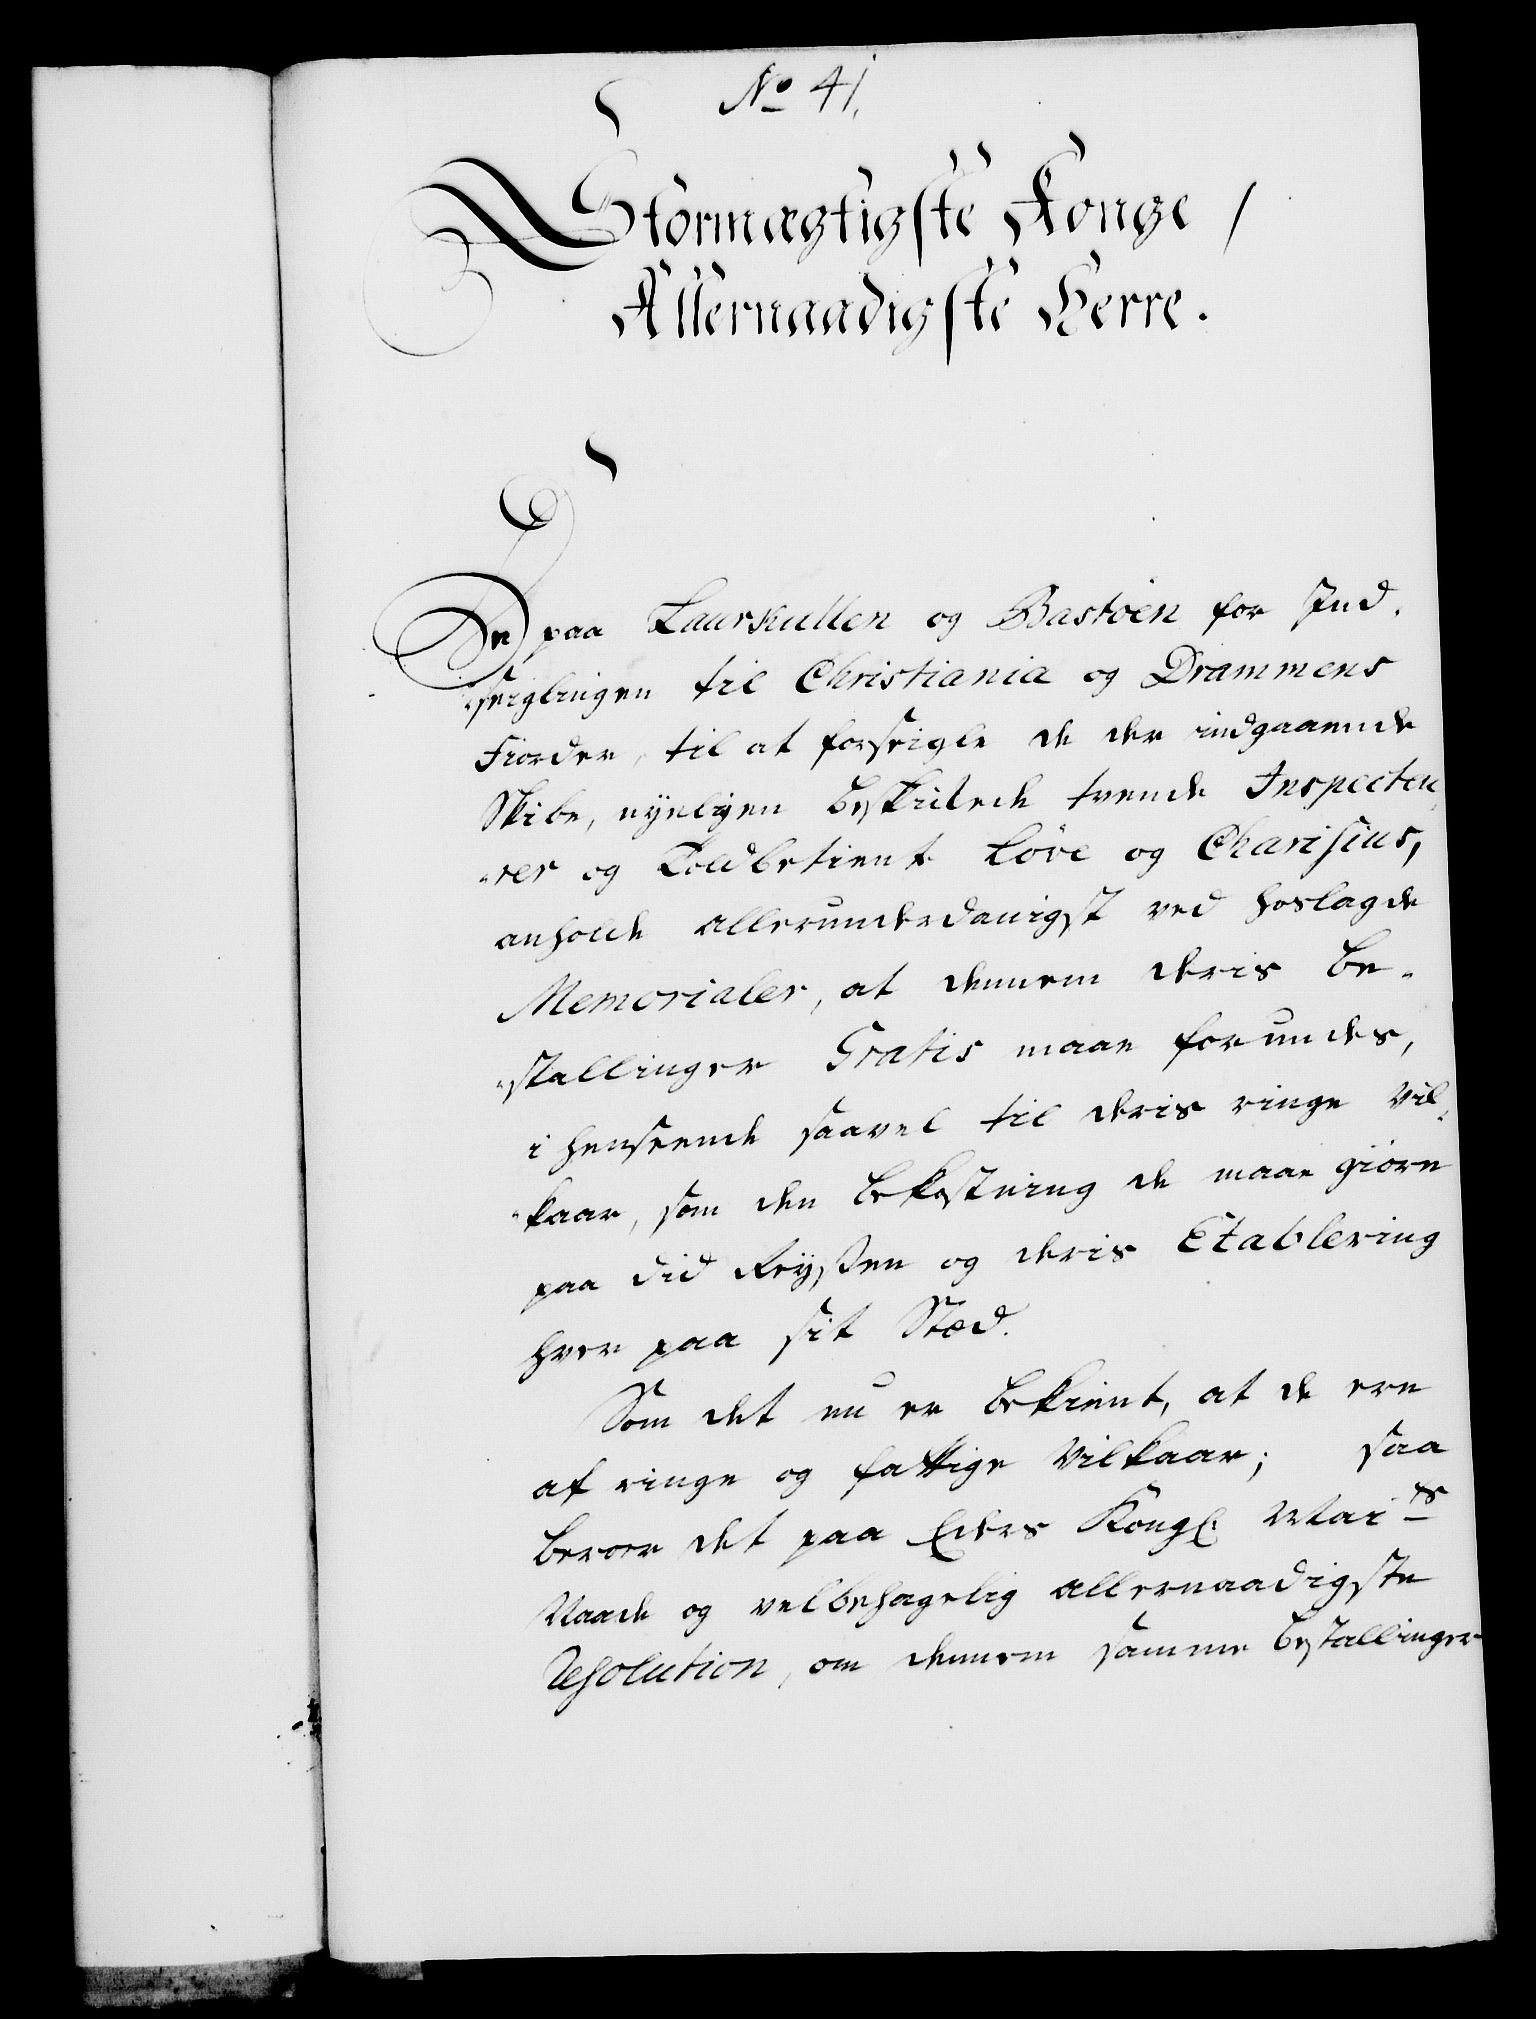 No 41.
Stormægtigste Konge /
Allernaadigste Herre.
De paa Laurkullen og Bastöen for Ind-
"seiglingen til Christiania og Drammens
Fiorder, til at forseigle de der indgaaende
Skibe, nyeligen beskikkede tvende Inspecteu-
"rer og Toldbetient Löve og Charisius,
anholde allerunderdanigst ved hoslagde
Memorialer, at dennem deris Be-
"stallinger Gratis maae forundes,
i henseende saavel til deris ringe Vil-
"kaar, som den bekostning de maae giöre
paa did Reyssen og deris Etablering
hver paa sit Stæd.
Som det nu er bekient, at de ere
af ringe og fattige Vilkaar; saa
beroer det paa Eders Kongl. Maits
Naade og velbehagelig allernaadigste
Resolution, om dennem samme bestallinger